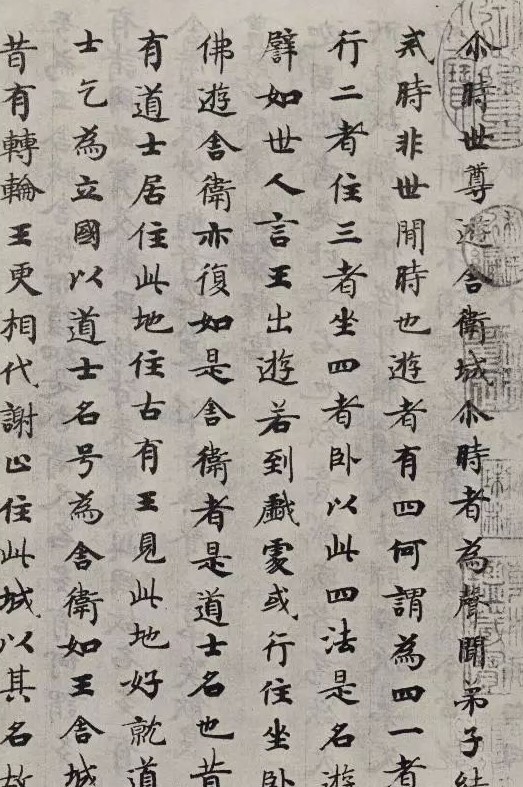 尒時世尊遊舎衛城尒時者為聲聞弟子結
戒時非世間時也遊者有四何謂為四一者
行二者住三者坐四者卧以此四法是名遊
譬如世人言王出遊若到戲處或行住坐卧
佛遊舎衛亦復如是舎衛者是道士名也昔
有道士居住此地住古有王見此地好就道
士乞為立國以道士名号為舎衛如王舎城
昔有轉輪王更相代謝止住此城以其名故